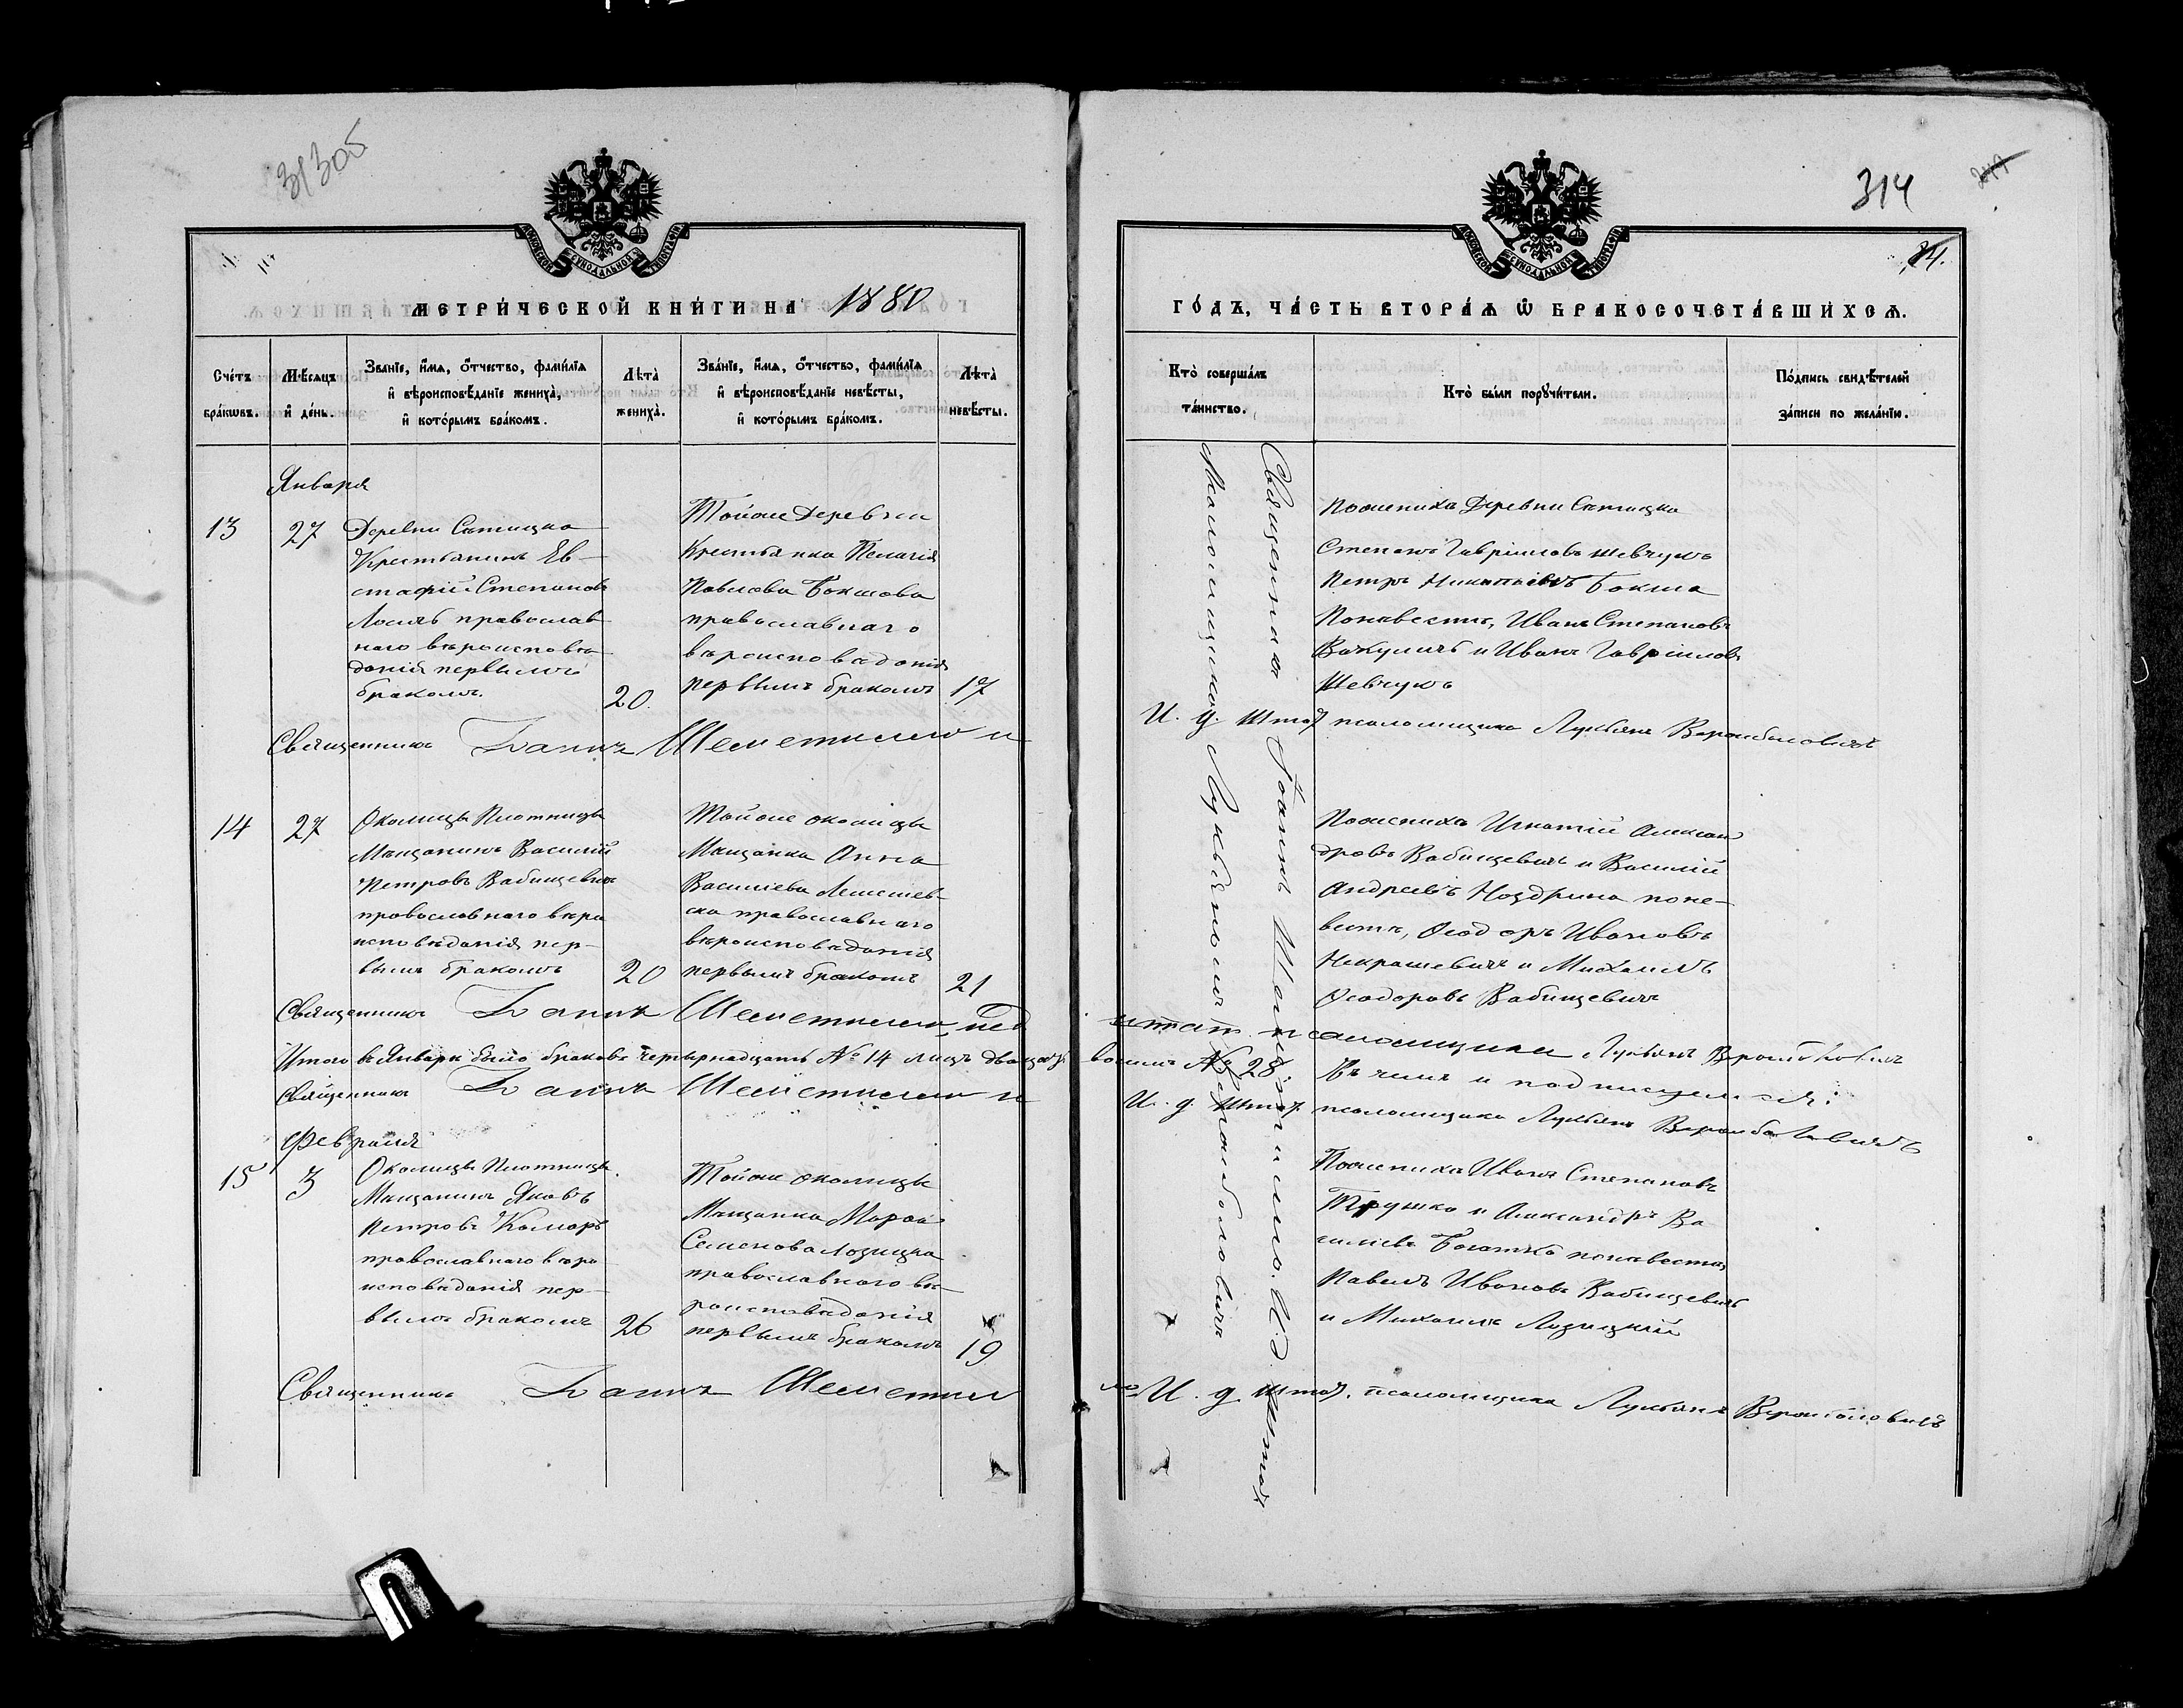 31305
314
34.
МЕТРИ́ЧЕСКОЙ КНИ́ГИ НА 1880
ГО́ДЪ, ЧА́СТЬ ВТОРА́Ѧ Ѽ БРАКОСОЧЕТА́ВШИХСѦ.
Сче́тъ бра́кωвъ.
Мѣ́сѧцъ и҆ де́нь.
Зва́нїе, и҆́мѧ, ѻ҆́тчество, фами́лїѧ и҆ вѣроисповѣ́данїе жениха̀, и҆ кото́рымъ бра́комъ.
Лѣ́та̀ жениха̀.
Зва́нїе, и҆́мѧ, ѻ҆́тчество, фами́лїѧ и҆ вѣроисповѣ́данїе невѣ́сты, и҆ кото́рымъ бра́комъ.
Лѣ́та̀ невѣ́сты.
Кто̀ соверша́лъ та́инство.
Кто̀ бы́ли порꙋчи́тели.
По́дпись свидѣ́телей за́писи по жела́нїю.
Января
13
27
Деревни Сятицка
Крестьянинъ Ев-
стафій Степановъ
Лосичъ православ
наго вѣроисповѣ
данія первымъ
бракомъ.
20.
Тойже Деревни
Крестьянка Пелагія
Павлова Бокшова
православнаго
вѣроисповѣданія
первымъ бракомъ
17
По женихѣ Деревни Сятицка
Степанъ Гавріиловъ Шевчукъ
Петръ Бокша
По невестѣ, Иванъ Степановъ
Вакуличъ и Иванъ Гавріиловъ
Шевчукъ
Священникъ Іоаннъ
И. д. штат. псаломщика Лукьянъ
14
27
Околицы Плотницы
Мѣщанинъ Василій
Петровъ Вабищевичъ
православнаго вѣро
исповѣданія пер-
вымъ бракомъ
20
Тойже околицы
Мѣщанка Анна
Василіева Лемешев-
ска православнаго
вѣроисповѣданія
первымъ бракомъ
21
По женихѣ Игнатій Алексан
дровъ Вабищевичъ и Василій
Андреевъ Ноздрина по не-
вестѣ, Ѳеодоръ Ивановъ
Некрашевичъ и Михаилъ
Ѳеодоровъ Вабищевичъ
Священникъ Іоаннъ
штат. псаломщика Лукьянъ
Итого въ Январѣ было браковъ четырнадцать № 14 лицъ двадцать восемь № 28. Въ чемъ и подписуемся:
Священникъ Іоаннъ
И. д. штат. псаломщика Лукьянъ
Февраля
15
3
Околицы Плотницы
Мѣщанинъ Яковъ
Петровъ Комаръ
православнаго вѣро
исповѣданія пер-
вымъ бракомъ
26
Тойже околицы
Мѣщанка Марѳа
Семенова Лозицка
православнаго вѣ
роисповѣданія
первымъ бракомъ
19
По женихѣ Иванъ Степановъ
Трушко и Александръ Ва
силіевъ по невестѣ
Павелъ Ивановъ Вабищевичъ
и Михаилъ Лозицкій
Священникъ Іоаннъ
И. д. штат. псаломщика Лукьянъ
Священникъ Іоаннъ И. д. штат.
псаломщика Лукьяномъ